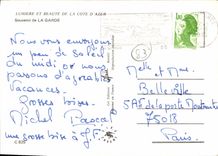 LUMIERE ET BEAUTE DE LA COTE D'AZUR
Souvenir de LA GARDE
Nous vous envoyons
un peu de soleil
du midi où nous
passons d'agréables
vacances.
Grosses bises
Michel Pascal
une grosse bise à
C 825
Mette et Mme
Belleville
de la poste
75018
Paris